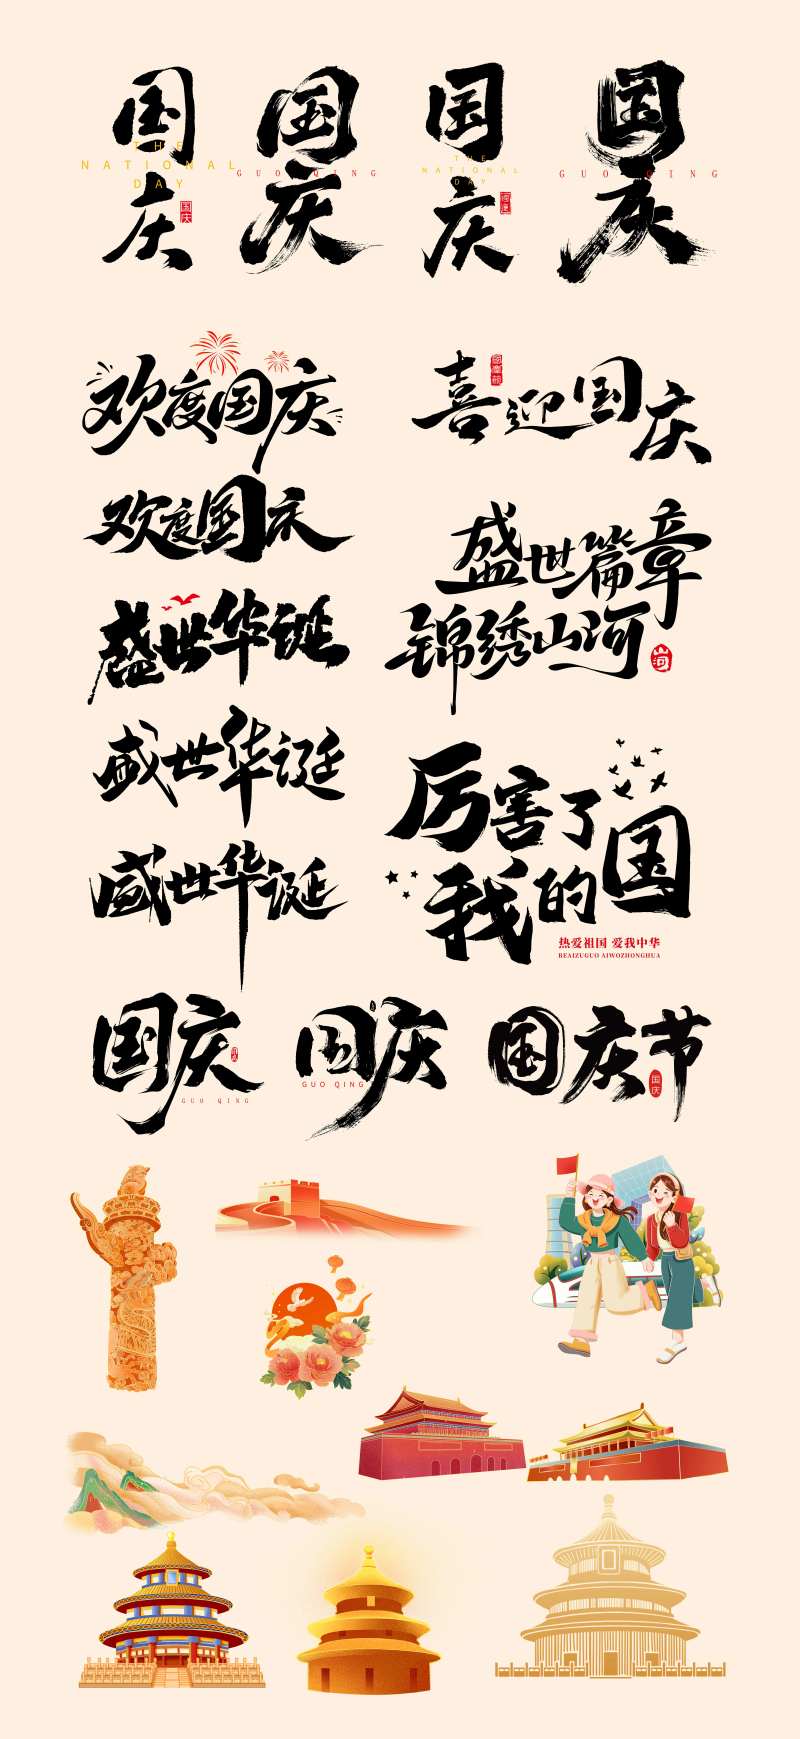 国庆
THE
NATIONAL
DAY
国庆
国庆
GUO QING
国庆
THE
NATIONAL
DAY
国庆
国庆
GUO QING
欢度国庆
喜迎国庆
欢度国庆
盛世篇章
锦绣山河
山河
盛世华诞
盛世华诞
厉害了
我的国
热爱祖国 爱我中华
REAIZUGUO AIWOZHONGHUA
盛世华诞
国庆
GUO QING
国庆
GUO QING
国庆节
国庆